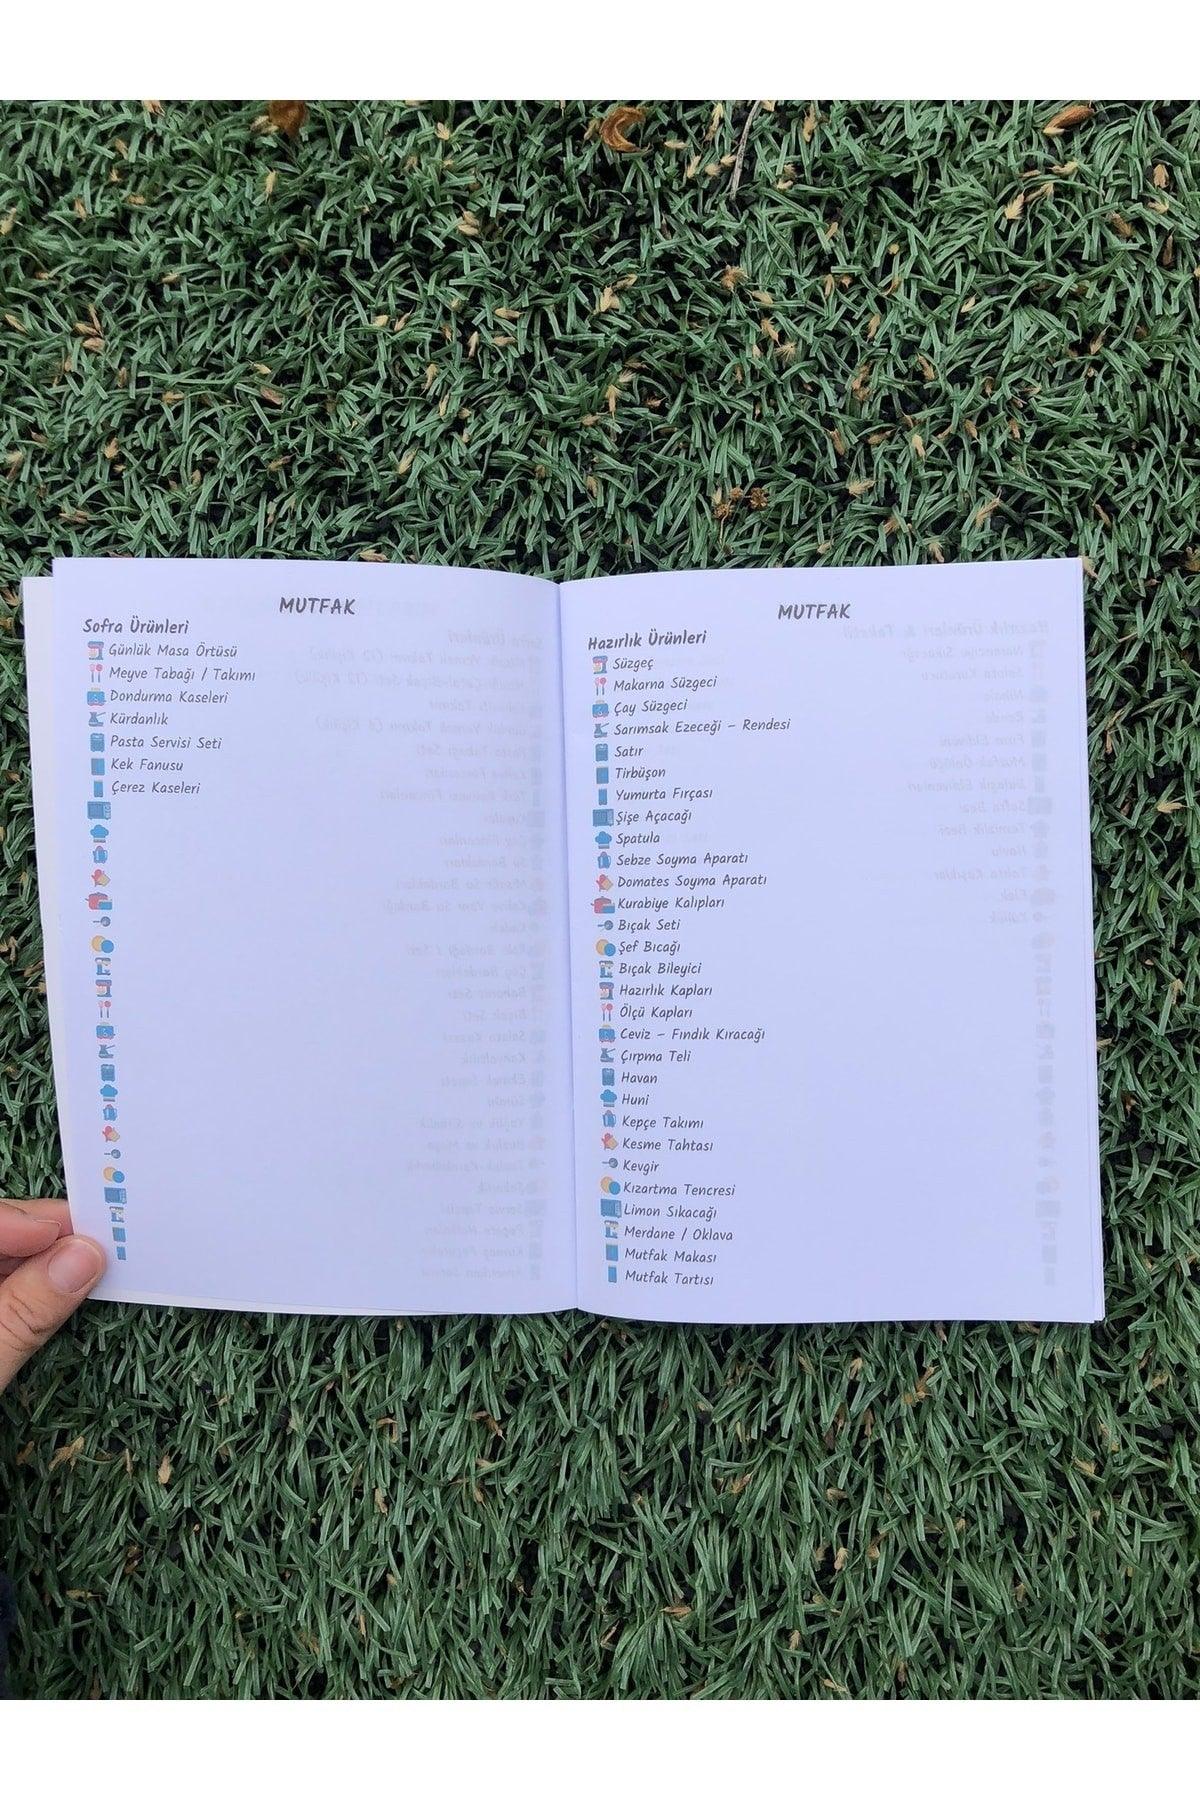 MUTFAK
Sofra Ürünleri
Günlük Masa Örtüsü
Meyve Tabağı / Takımı
Dondurma Kaseleri
Kürdanlık
Pasta Servisi Seti
Kek Fanusu
Çerez Kaseleri
MUTFAK
Hazırlık Ürünleri
Süzgeç
Makarna Süzgeci
Çay Süzgeci
Sarımsak Ezeceği – Rendesi
Satır
Tirbüşon
Yumurta Fırçası
Şişe Açacağı
Spatula
Sebze Soyma Aparatı
Domates Soyma Aparatı
Kurabiye Kalıpları
Bıçak Seti
Şef Bıcağı
Bıçak Bileyici
Hazırlık Kapları
Ölçü Kapları
Ceviz – Fındık Kıracağı
Çırpma Teli
Havan
Huni
Kepçe Takımı
Kesme Tahtası
Kevgir
Kızartma Tencresi
Limon Sıkacağı
Merdane / Oklava
Mutfak Makası
Mutfak Tartısı